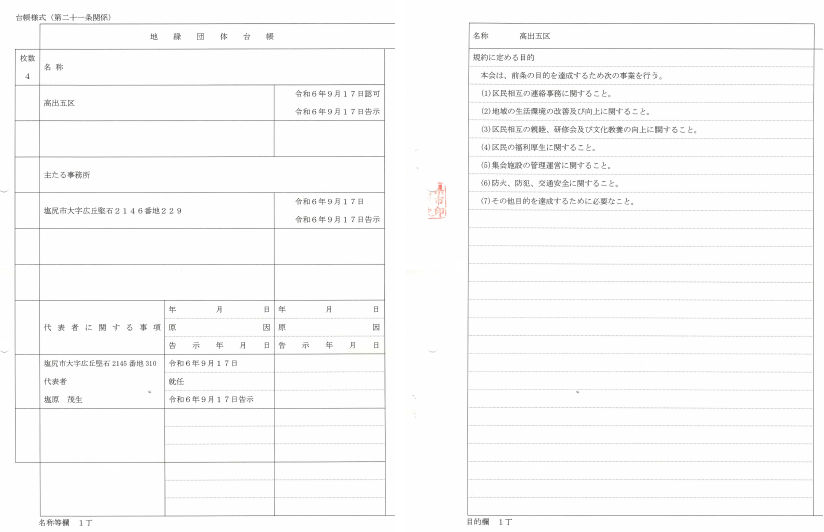 台帳様式（第二十一条関係）
地縁団体台帳
枚数
4
名称
高出五区
令和６年９月１７日認可
令和６年９月１７日告示
主たる事務所
塩尻市大字広丘堅石２１４６番地２２９
令和６年９月１７日
令和６年９月１７日告示
代表者に関する事項
年　月　日
原　因
告示　年　月　日
年　月　日
原　因
告示　年　月　日
塩尻市大字広丘堅石2145番地310
代表者
塩原　茂生
令和６年９月１７日
就任
令和６年９月１７日告示
名称等欄　１丁
名称　高出五区
規約に定める目的
本会は、前条の目的を達成するため次の事業を行う。
(1)区民相互の連絡事務に関すること。
(2)地域の生活環境の改善及び向上に関すること。
(3)区民相互の親睦、研修会及び文化教養の向上に関すること。
(4)区民の福利厚生に関すること。
(5)集会施設の管理運営に関すること。
(6)防火、防犯、交通安全に関すること。
(7)その他目的を達成するために必要なこと。
目的欄　１丁